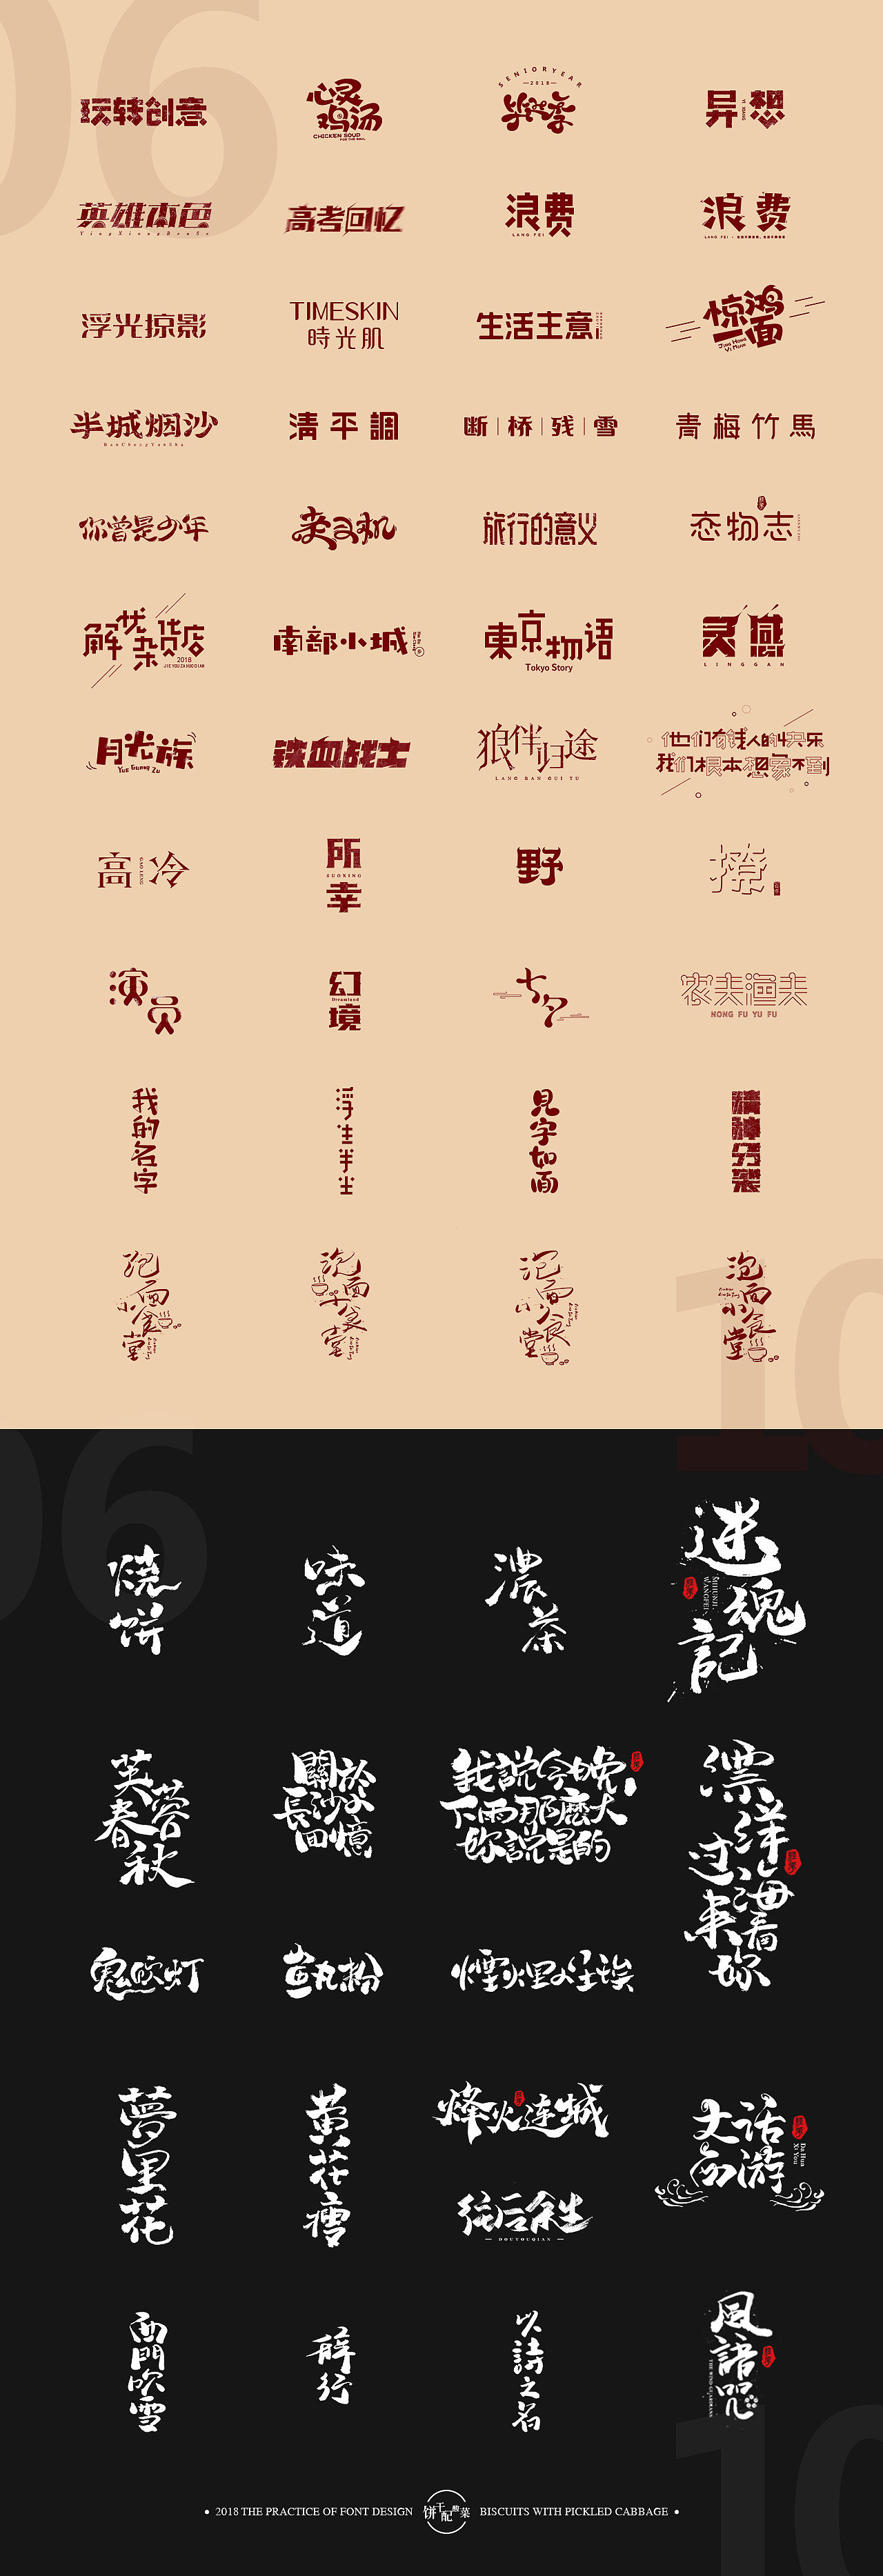 06
玩转创意
心灵
鸡汤
CHICKEN SOUP
FOR THE SOUL
SENIORYEAR
2018
毕业季
异想
YI XIANG
英雄本色
YingXiongBenSe
高考回忆
浪费
LANG FEI
浪费
LANG FEI
浮光掠影
TIMESKIN
時光肌
生活主意
惊鸿
一面
Jing Hong
Yi Mian
半城烟沙
BanChengYanSha
清平調
断|桥|残|雪
青梅竹馬
你曾是少年
旅行的意义
恋物志
解忧杂货店
2018
JIEYOUZAHUODIAN
南部小城
東京物语
Tokyo Story
灵感
LINGGAN
月光族
Yue Guang Zu
铁血战士
狼伴归途
LANG BAN GUI TU
他们有钱人的快乐
我们根本想象不到
高冷
GAO LENG
所
SUOXING
幸
野
撩
演员
幻
Dreamland
境
七夕
农夫渔夫
NONG FU YU FU
我的名字
浮生半尘
見字如面
精神分裂
泡面小食堂
泡面小食堂
泡面小食堂
泡面小食堂
10
06
烧饼
味道
濃茶
迷魂記
芙蓉
春秋
關於
長沙的
回憶
我説今晚
下雨那麽大
你説是的
漂洋过海来看你
鬼吹灯
鱼丸粉
煙火里的尘埃
夢里花
黄花瘦
烽火连城
往后余生
DOUYOUQIAN
大话西游
Da Hua
Xi You
西門吹雪
薛行
以詩之名
風語咒
THE WIND GUARDIANS
10
• 2018 THE PRACTICE OF FONT DESIGN 饼干配酸菜 BISCUITS WITH PICKLED CABBAGE •